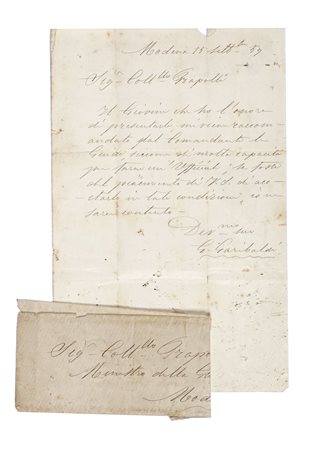 Modena 15 Sett.e 59
Sigr Coll.llo Frapolli
Il Giovine che ho l'onore
di presentarle mi vien racco-
mandato dal Comandante le
Guide siccome di molta capacità
per farne un Uffiziale se fosse
del piacimento di V.S. di acce-
ttarlo in tale condizione, io ne
sarei contento
Dev.mo suo
G. Garibaldi
Sigr Coll.llo Frapo
Ministro della Gu
Mod